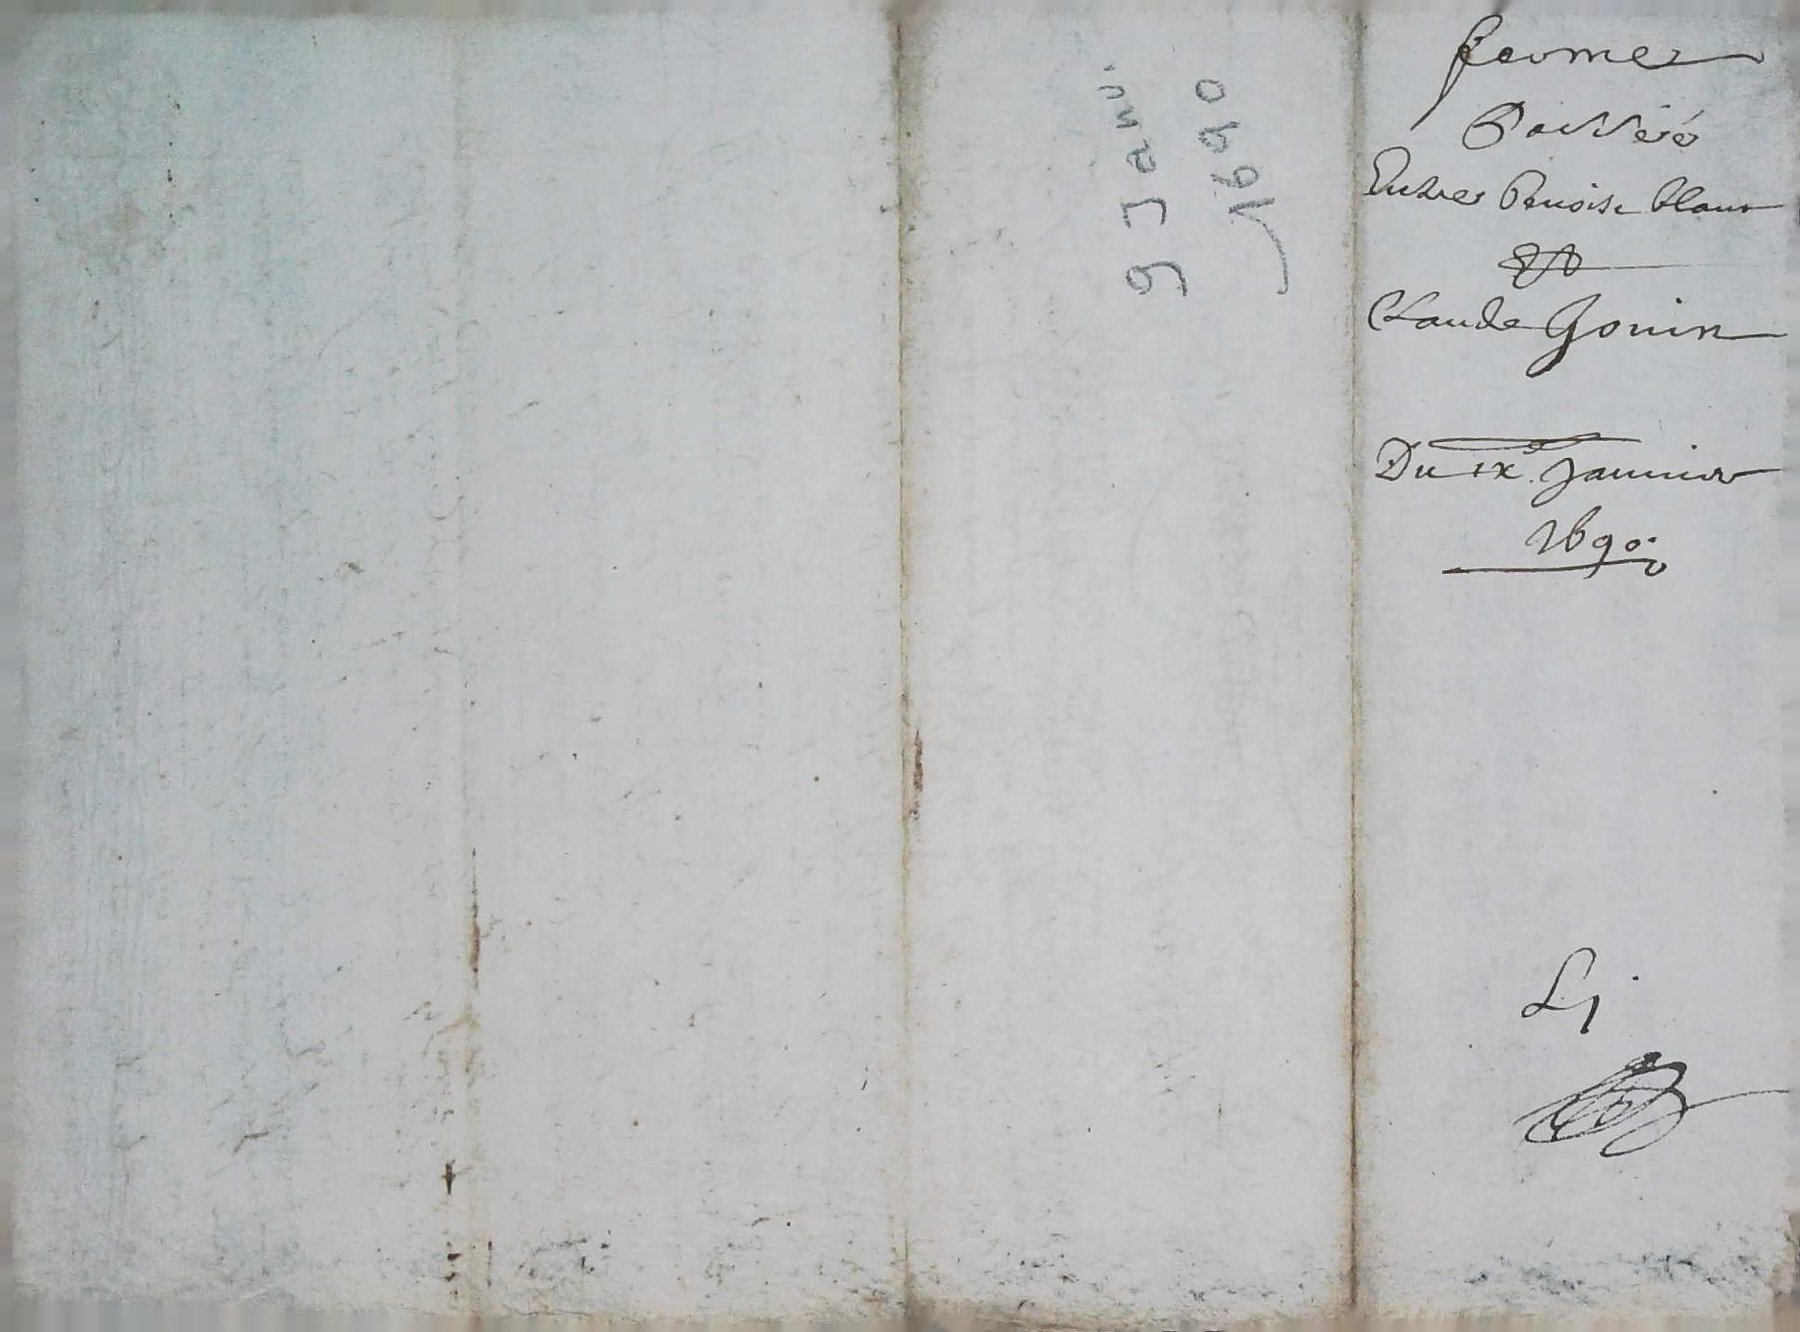 9 Janv.
1690
ferme
Passée
Entre Benoist blanc
Et
Claude Gonin
Du ix. Janvier
1690.